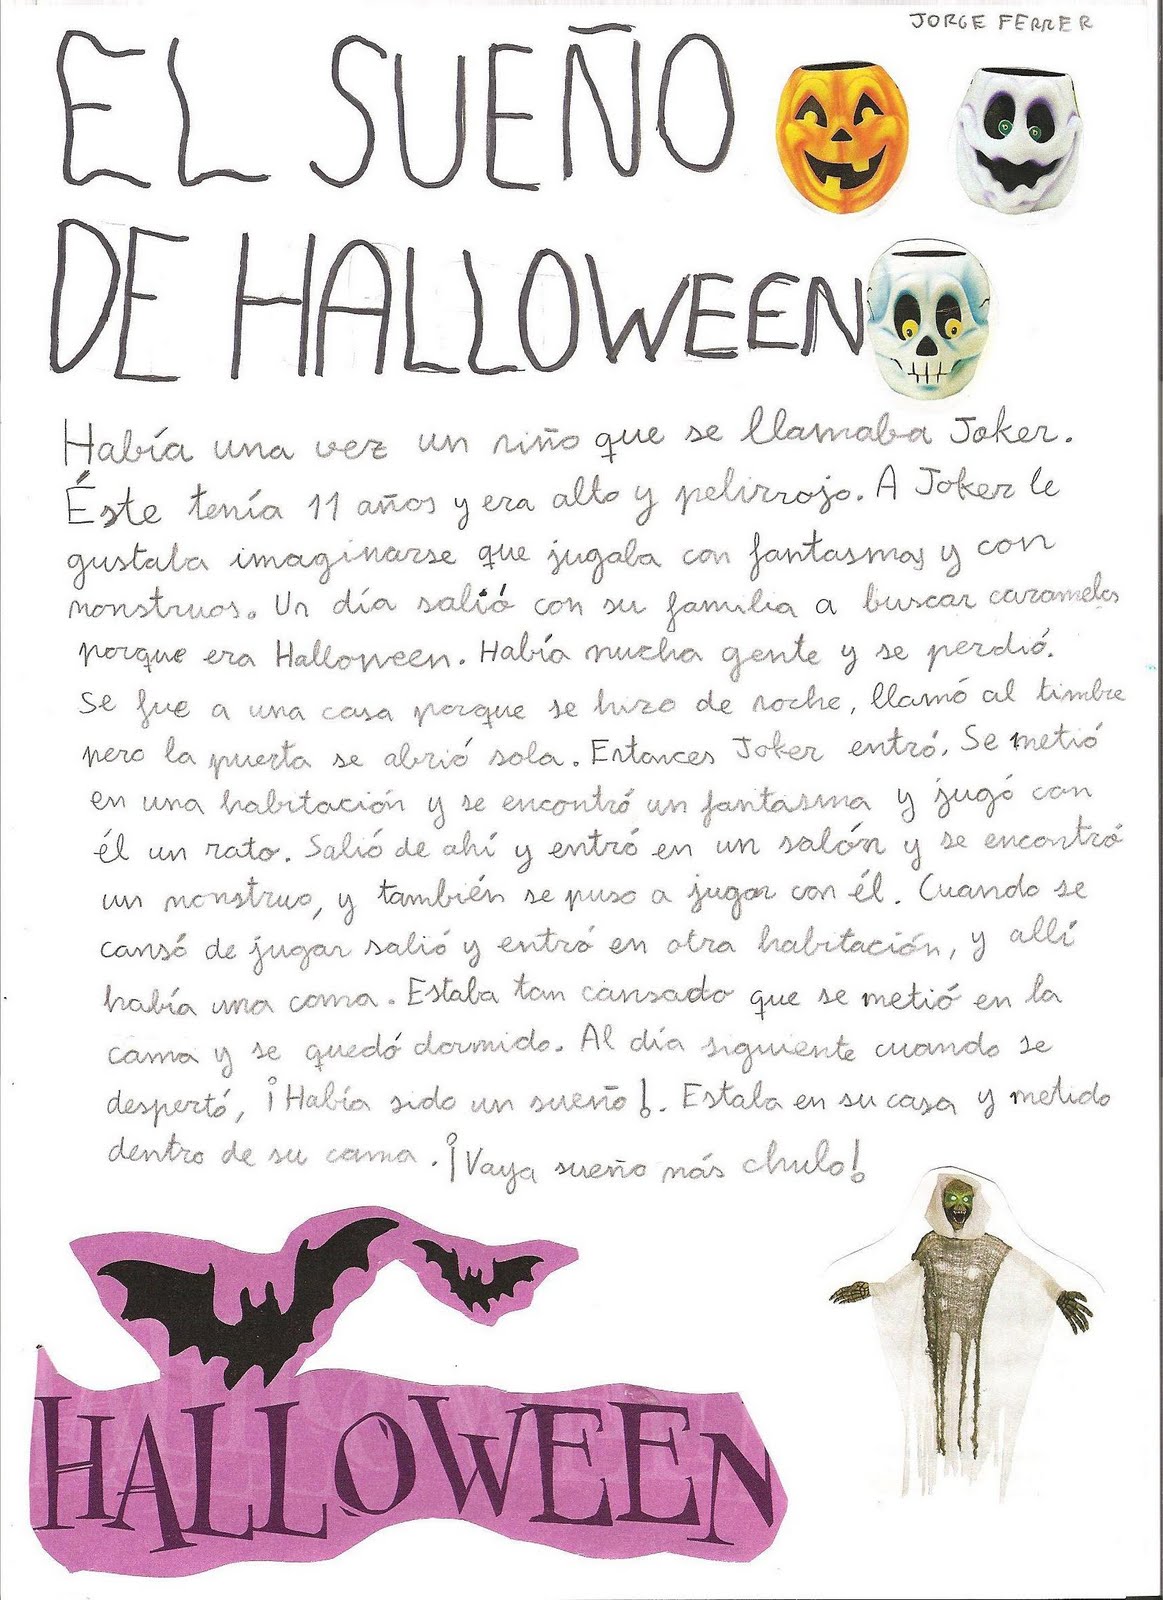 JORGE FERRER
EL SUEÑO
DE HALLOWEEN
Había una vez un niño que se llamaba Joker.
Éste tenía 11 años y era alto y pelirrojo. A Joker le
gustaba imaginarse que jugaba con fantasmas y con
monstruos. Un día salió con su familia a buscar caramelos
porque era Halloween. Había mucha gente y se perdió.
Se fue a una casa porque se hizo de noche, llamó al timbre
pero la puerta se abrió sola. Entonces Joker entró. Se metió
en una habitación y se encontró un fantasma y jugó con
él un rato. Salió de ahí y entró en un salón y se encontró
un monstruo, y también se puso a jugar con él. Cuando se
cansó de jugar salió y entró en otra habitación, y allí
había una cama. Estaba tan cansado que se metió en la
cama y se quedó dormido. Al día siguiente cuando se
despertó, ¡Había sido un sueño!. Estaba en su casa y metido
dentro de su cama. ¡Vaya sueño más chulo!
HALLOWEEN